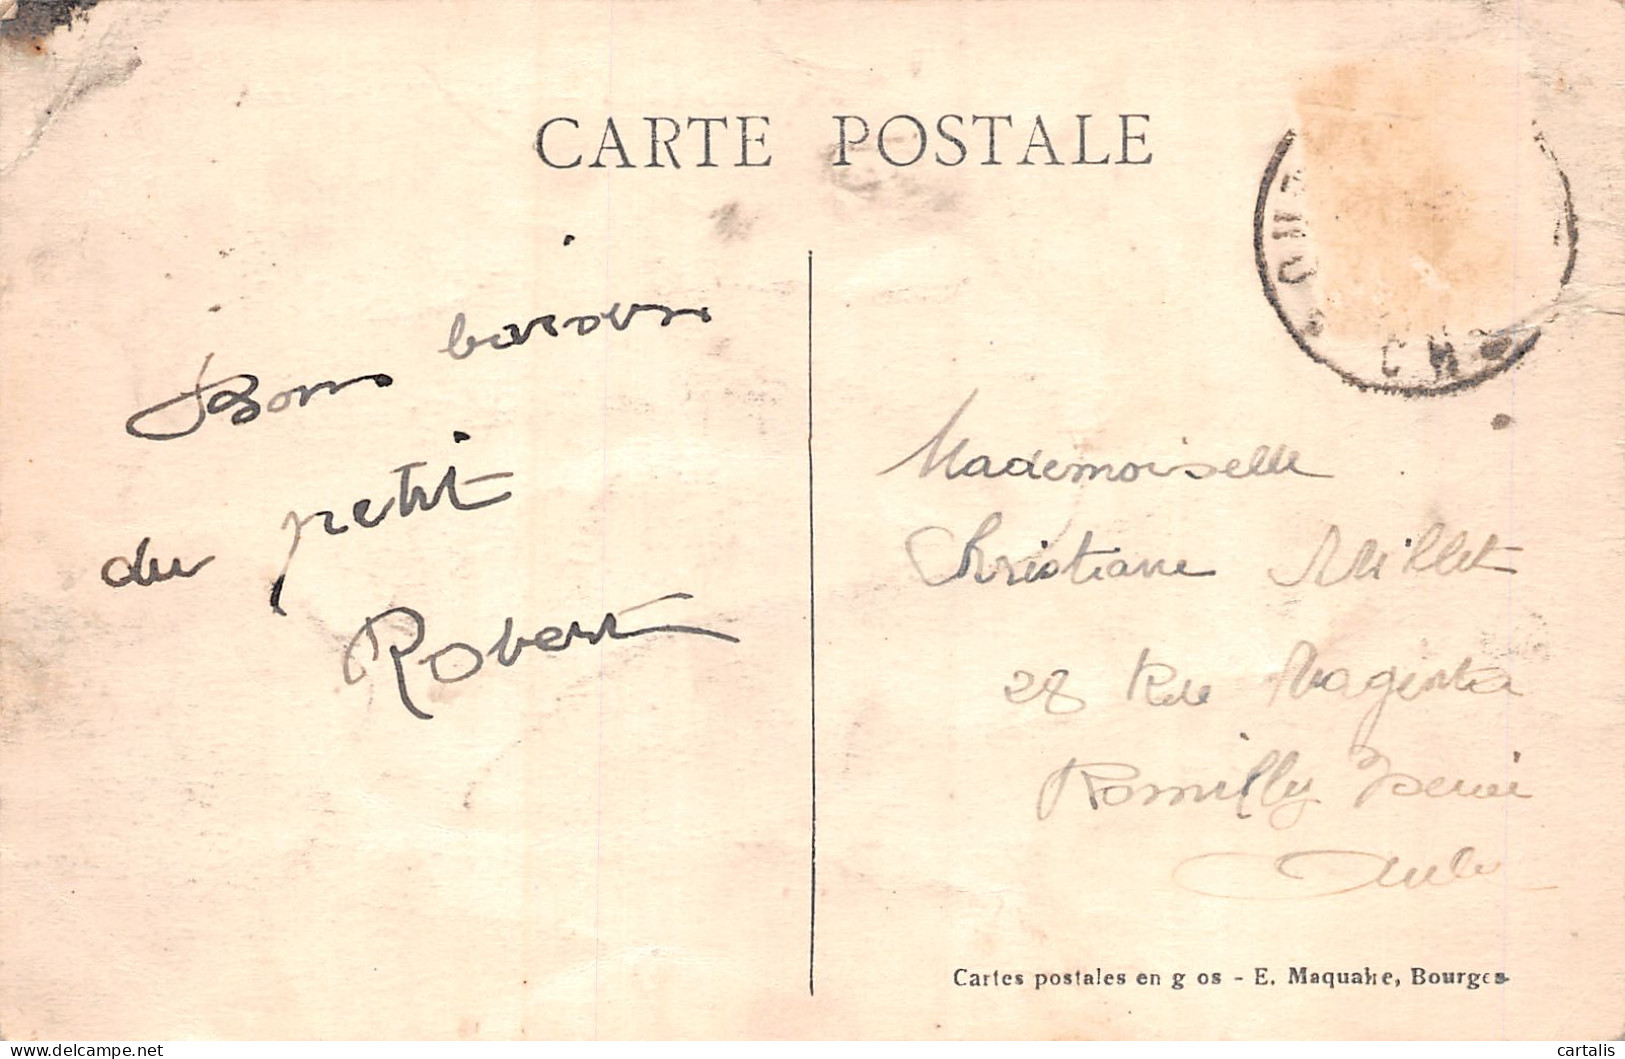 CARTE POSTALE
Bons baisers
du petit
Robert
Mademoiselle
Christiane Millet
28 Rue Magenta
Romilly Seine
Aube
Cartes postales en g os - E. Maquaire, Bourges
www.delcampe.net
cartalis